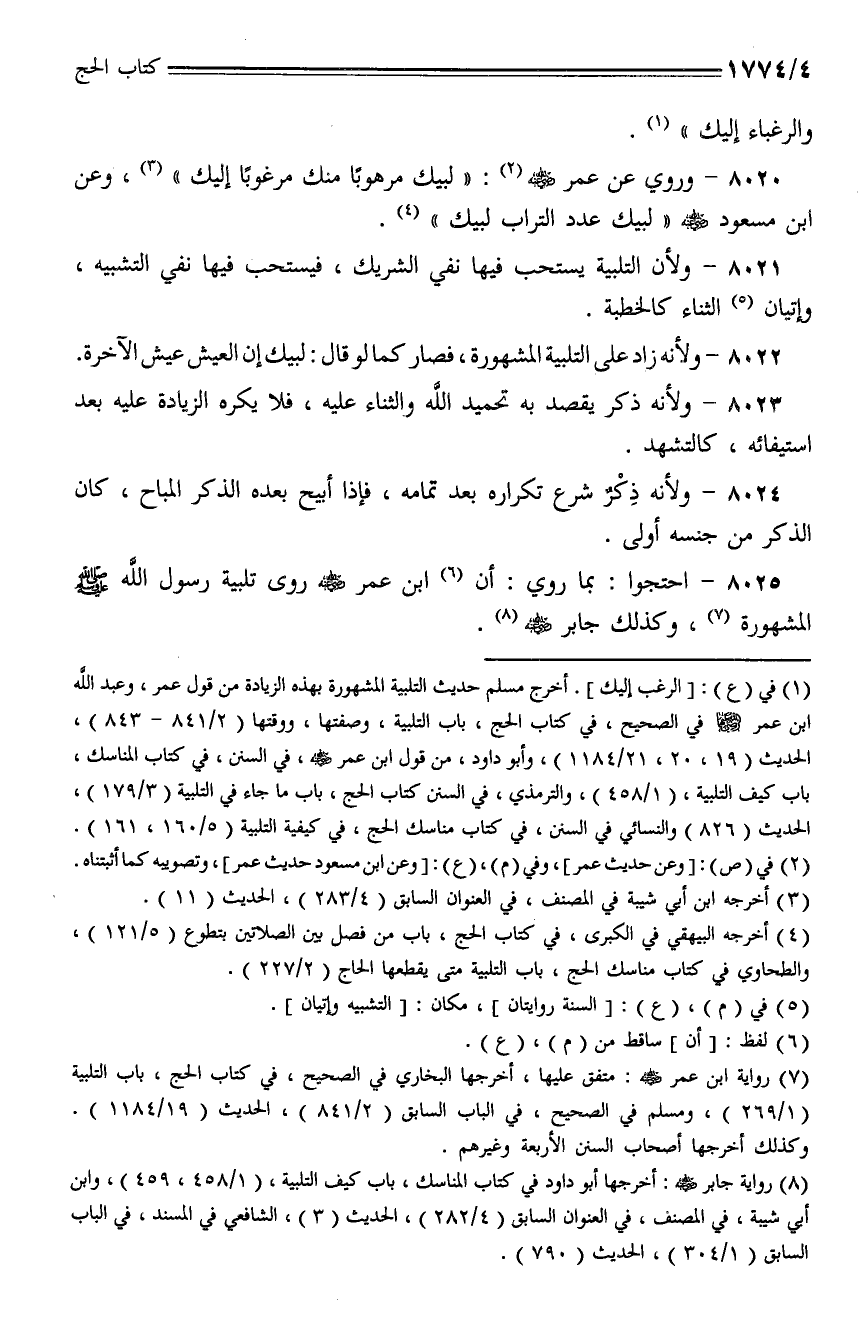 ١٧٧٤/٤ كتاب الحج
والرغباء إليك » (١) .
٨٠٢٠ - وروي عن عمر ﷺ (٢) : « لبيك مرهوبًا منك مرغوبًا إليك » (٣) ، وعن
ابن مسعود ﷺ « لبيك عدد التراب لبيك » (٤) .
٨٠٢١ - ولأن التلبية يستحب فيها نفي الشريك ، فيستحب فيها نفي التشبيه ،
وإتيان (٥) الثناء كالخطبة .
٨٠٢٢ - ولأنه زاد على التلبية المشهورة ، فصار كما لو قال : لبيك إن العيش عيش الآخرة.
٨٠٢٣ - ولأنه ذكر يقصد به تحميد اللَّه والثناء عليه ، فلا يكره الزيادة عليه بعد
استيفائه ، كالتشهد .
٨٠٢٤ - ولأنه ذِكْرٌ شرع تكراره بعد تمامه ، فإذا أبيح بعده الذكر المباح ، كان
الذكر من جنسه أولى .
٨٠٢٥ - احتجوا : بما روي : أن (٦) ابن عمر ﷺ روى تلبية رسول اللَّه ﷺ
المشهورة (٧) ، وكذلك جابر ﷺ (٨) .
(١) في ( ع ) : [ الرغب إليك ] . أخرج مسلم حديث التلبية المشهورة بهذه الزيادة من قول عمر ، وعبد اللَّه
ابن عمر ﷺ في الصحيح ، في كتاب الحج ، باب التلبية ، وصفتها ، ووقتها ( ٨٤١/٢ - ٨٤٣ ) ،
الحديث ( ١٩ ، ٢٠ ، ١١٨٤/٢١ ) ، وأبو داود ، من قول ابن عمر ﷺ ، في السنن ، في كتاب المناسك ،
باب كيف التلبية ، ( ٤٥٨/١ ) ، والترمذي ، في السنن كتاب الحج ، باب ما جاء في التلبية ( ١٧٩/٣ ) ،
الحديث ( ٨٢٦ ) والنسائي في السنن ، في كتاب مناسك الحج ، في كيفية التلبية ( ١٦٠/٥ ، ١٦١ ) .
(٢) في ( ص ) : [ وعن حديث عمر ] ، وفي ( م ) ، ( ع ) : [ وعن ابن مسعود حديث عمر ] ، وتصويبه كما أثبتناه .
(٣) أخرجه ابن أبي شيبة في المصنف ، في العنوان السابق ( ٢٨٣/٤ ) ، الحديث ( ١١ ) .
(٤) أخرجه البيهقي في الكبرى ، في كتاب الحج ، باب من فصل بين الصلاتين بتطوع ( ١٢١/٥ ) ،
والطحاوي في كتاب مناسك الحج ، باب التلبية متى يقطعها الحاج ( ٢٢٧/٢ ) .
(٥) في ( م ) ، ( ع ) : [ السنة روايتان ] ، مكان : [ التشبيه وإتيان ] .
(٦) لفظ : [ أن ] ساقط من ( م ) ، ( ع ) .
(٧) رواية ابن عمر ﷺ : متفق عليها ، أخرجها البخاري في الصحيح ، في كتاب الحج ، باب التلبية
( ٢٦٩/١ ) ، ومسلم في الصحيح ، في الباب السابق ( ٨٤١/٢ ) ، الحديث ( ١١٨٤/١٩ ) .
وكذلك أخرجها أصحاب السنن الأربعة وغيرهم .
(٨) رواية جابر ﷺ : أخرجها أبو داود في كتاب المناسك ، باب كيف التلبية ، ( ٤٥٨/١ ، ٤٥٩ ) ، وابن
أبي شيبة ، في المصنف ، في العنوان السابق ( ٢٨٢/٤ ) ، الحديث ( ٣ ) ، الشافعي في المسند ، في الباب
السابق ( ٣٠٤/١ ) ، الحديث ( ٧٩٠ ) .